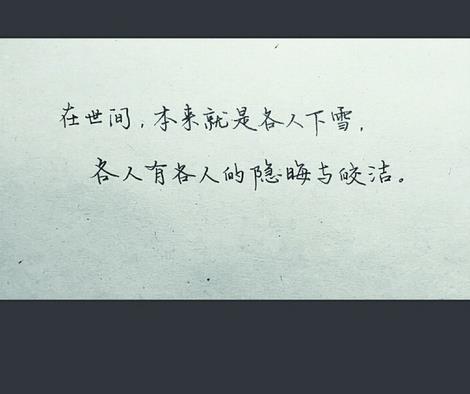 在世间，本来就是各人下雪，
各人有各人的隐晦与皎洁。